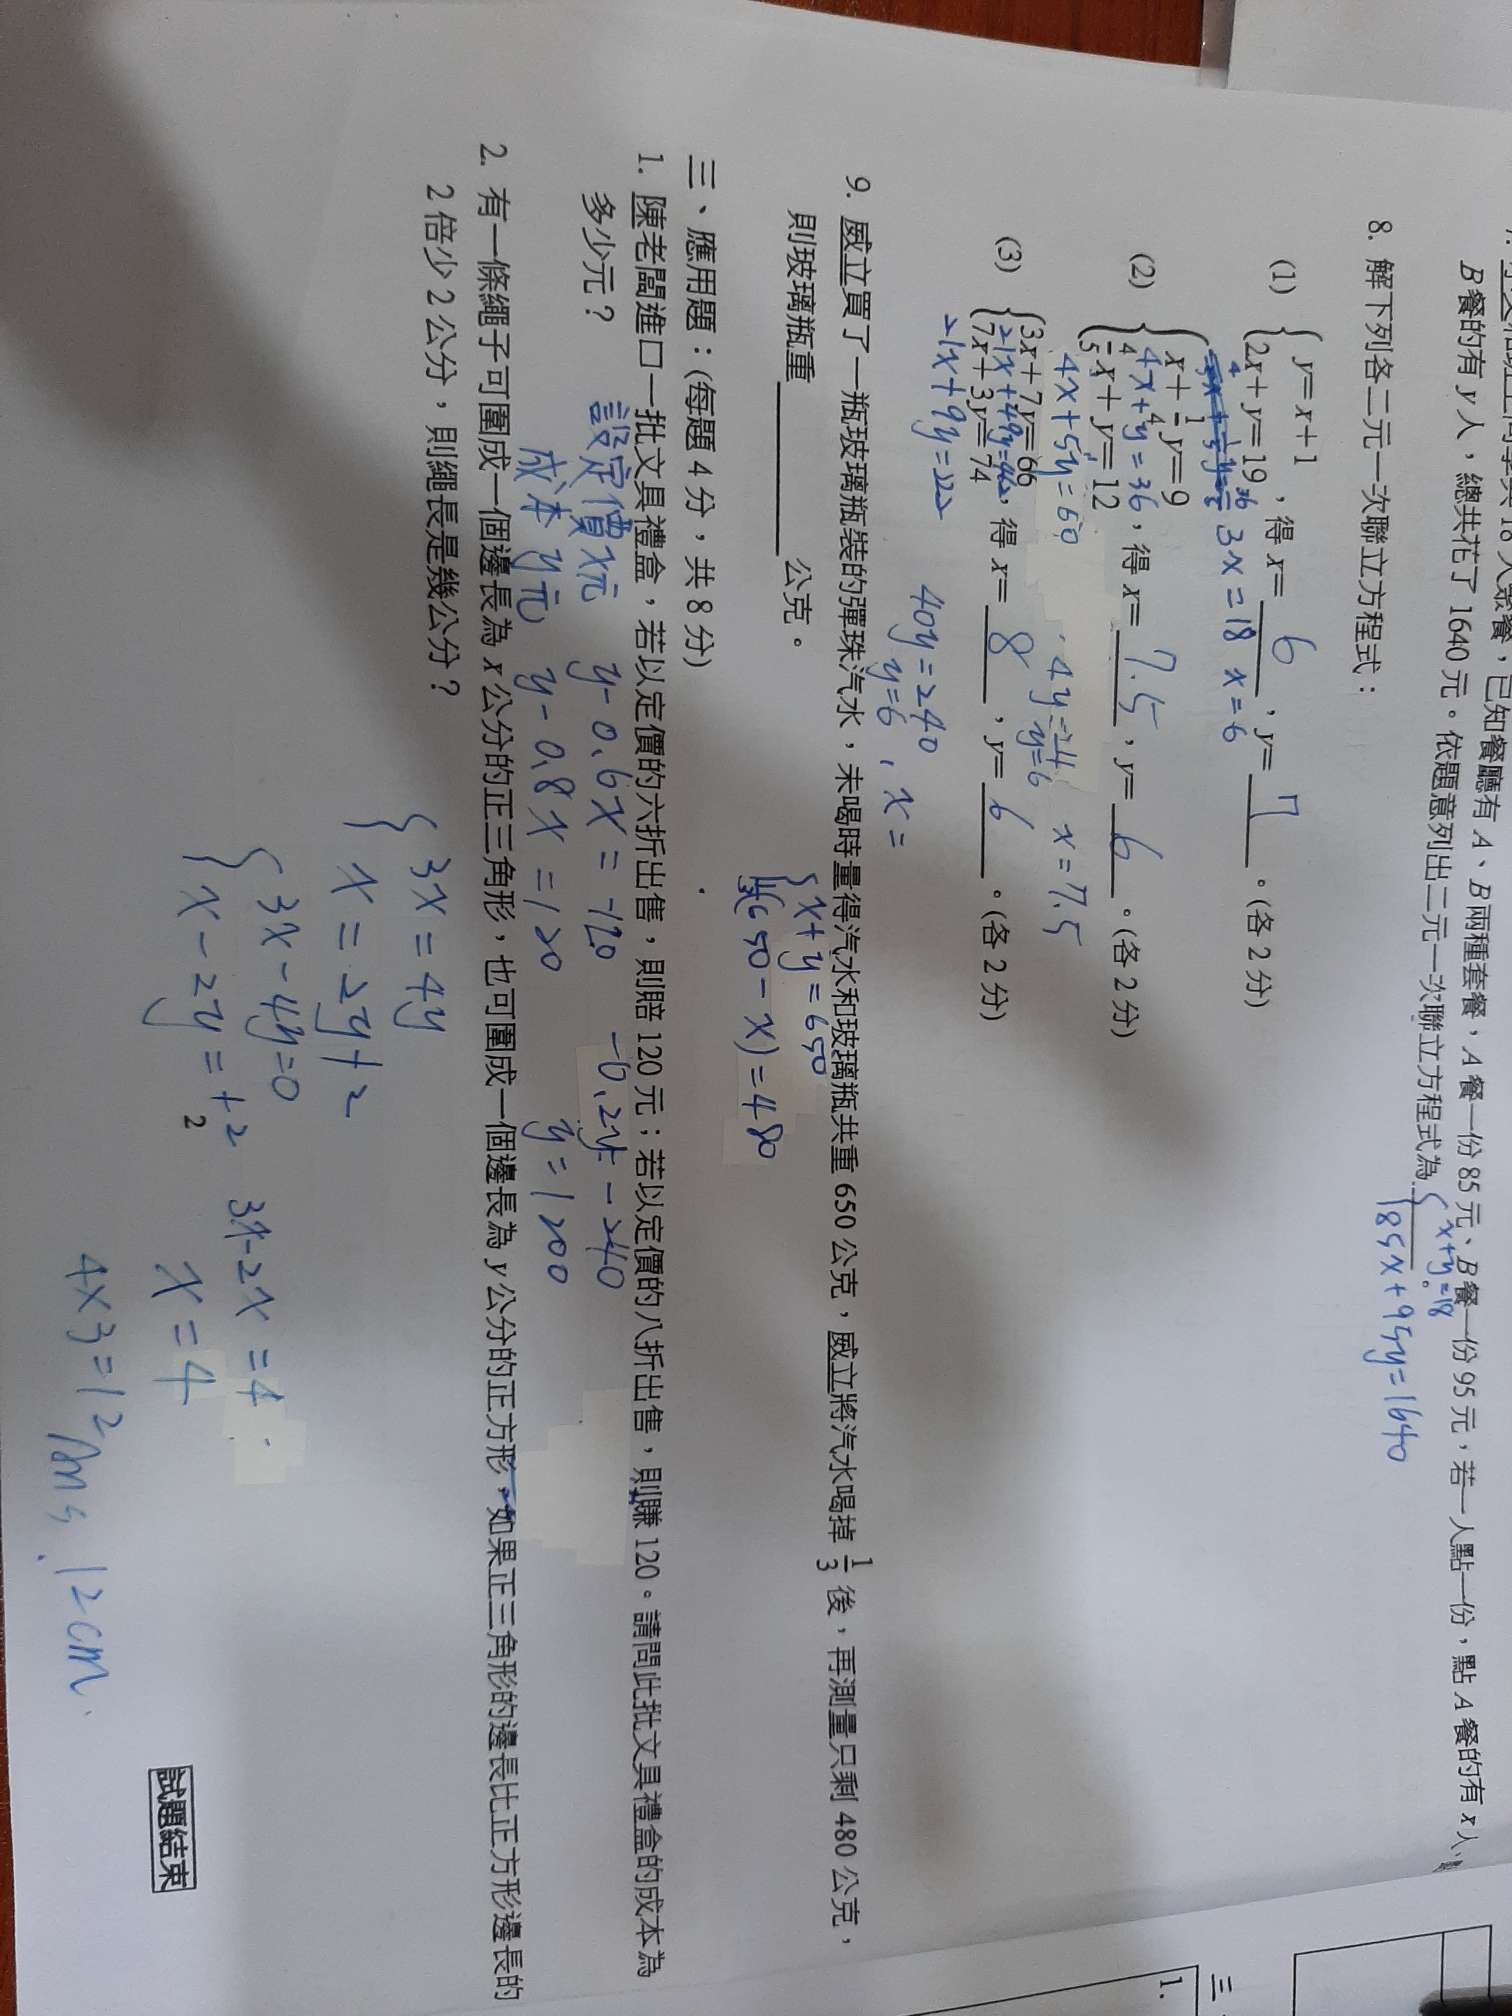 B餐的有 y 人，總共花了 1640 元。依題意列出二元一次聯立方程式為 { x+y=18
人聚餐，已知餐廳有 A、B 兩種套餐，A 餐一份 85 元、B 餐一份 95 元，若一人點一份，點 A 餐的有 x 人、
85x+95y=1640
8. 解下列各二元一次聯立方程式：
(1) { y=x+1
2x+y=19 ，得 x= 6 ，y= 7 。(各 2 分)
3x=18 x=6
(2) { x+1/4y=9
4x+y=36
4/5x+y=12 ，得 x= 7.5 ，y= 6 。(各 2 分)
4x+5y=60
4y=24 x=7.5
y=6
(3) { 3x+7y=66
21x+49y=462
7x+3y=74 ，得 x= 8 ，y= 6 。(各 2 分)
21x+9y=222
40y=240
y=6 , x=
9. 威立買了一瓶玻璃瓶裝的彈珠汽水，未喝時量得汽水和玻璃瓶共重 650 公克，威立將汽水喝掉 1/3 後，再測量只剩 480 公克，
則玻璃瓶重 公克。
{ x+y=650
(650-x)=480
三、應用題：(每題 4 分，共 8 分)
1. 陳老闆進口一批文具禮盒，若以定價的六折出售，則賠 120 元；若以定價的八折出售，則賺 120。請問此批文具禮盒的成本為
多少元？
設定價x元 y-0.6x=-120 -0.2y=-240
成本y元 y-0.8x=120 y=1200
2. 有一條繩子可圍成一個邊長為 x 公分的正三角形，也可圍成一個邊長為 y 公分的正方形，如果正三角形的邊長比正方形邊長的
2 倍少 2 公分，則繩長是幾公分？
{ 3x=4y
x=2y+2
{ 3x-4y=0 3x-2x=4
x-2y=+2 x=4
2
4x3=12 Ans. 12cm
試題結束
三
1.